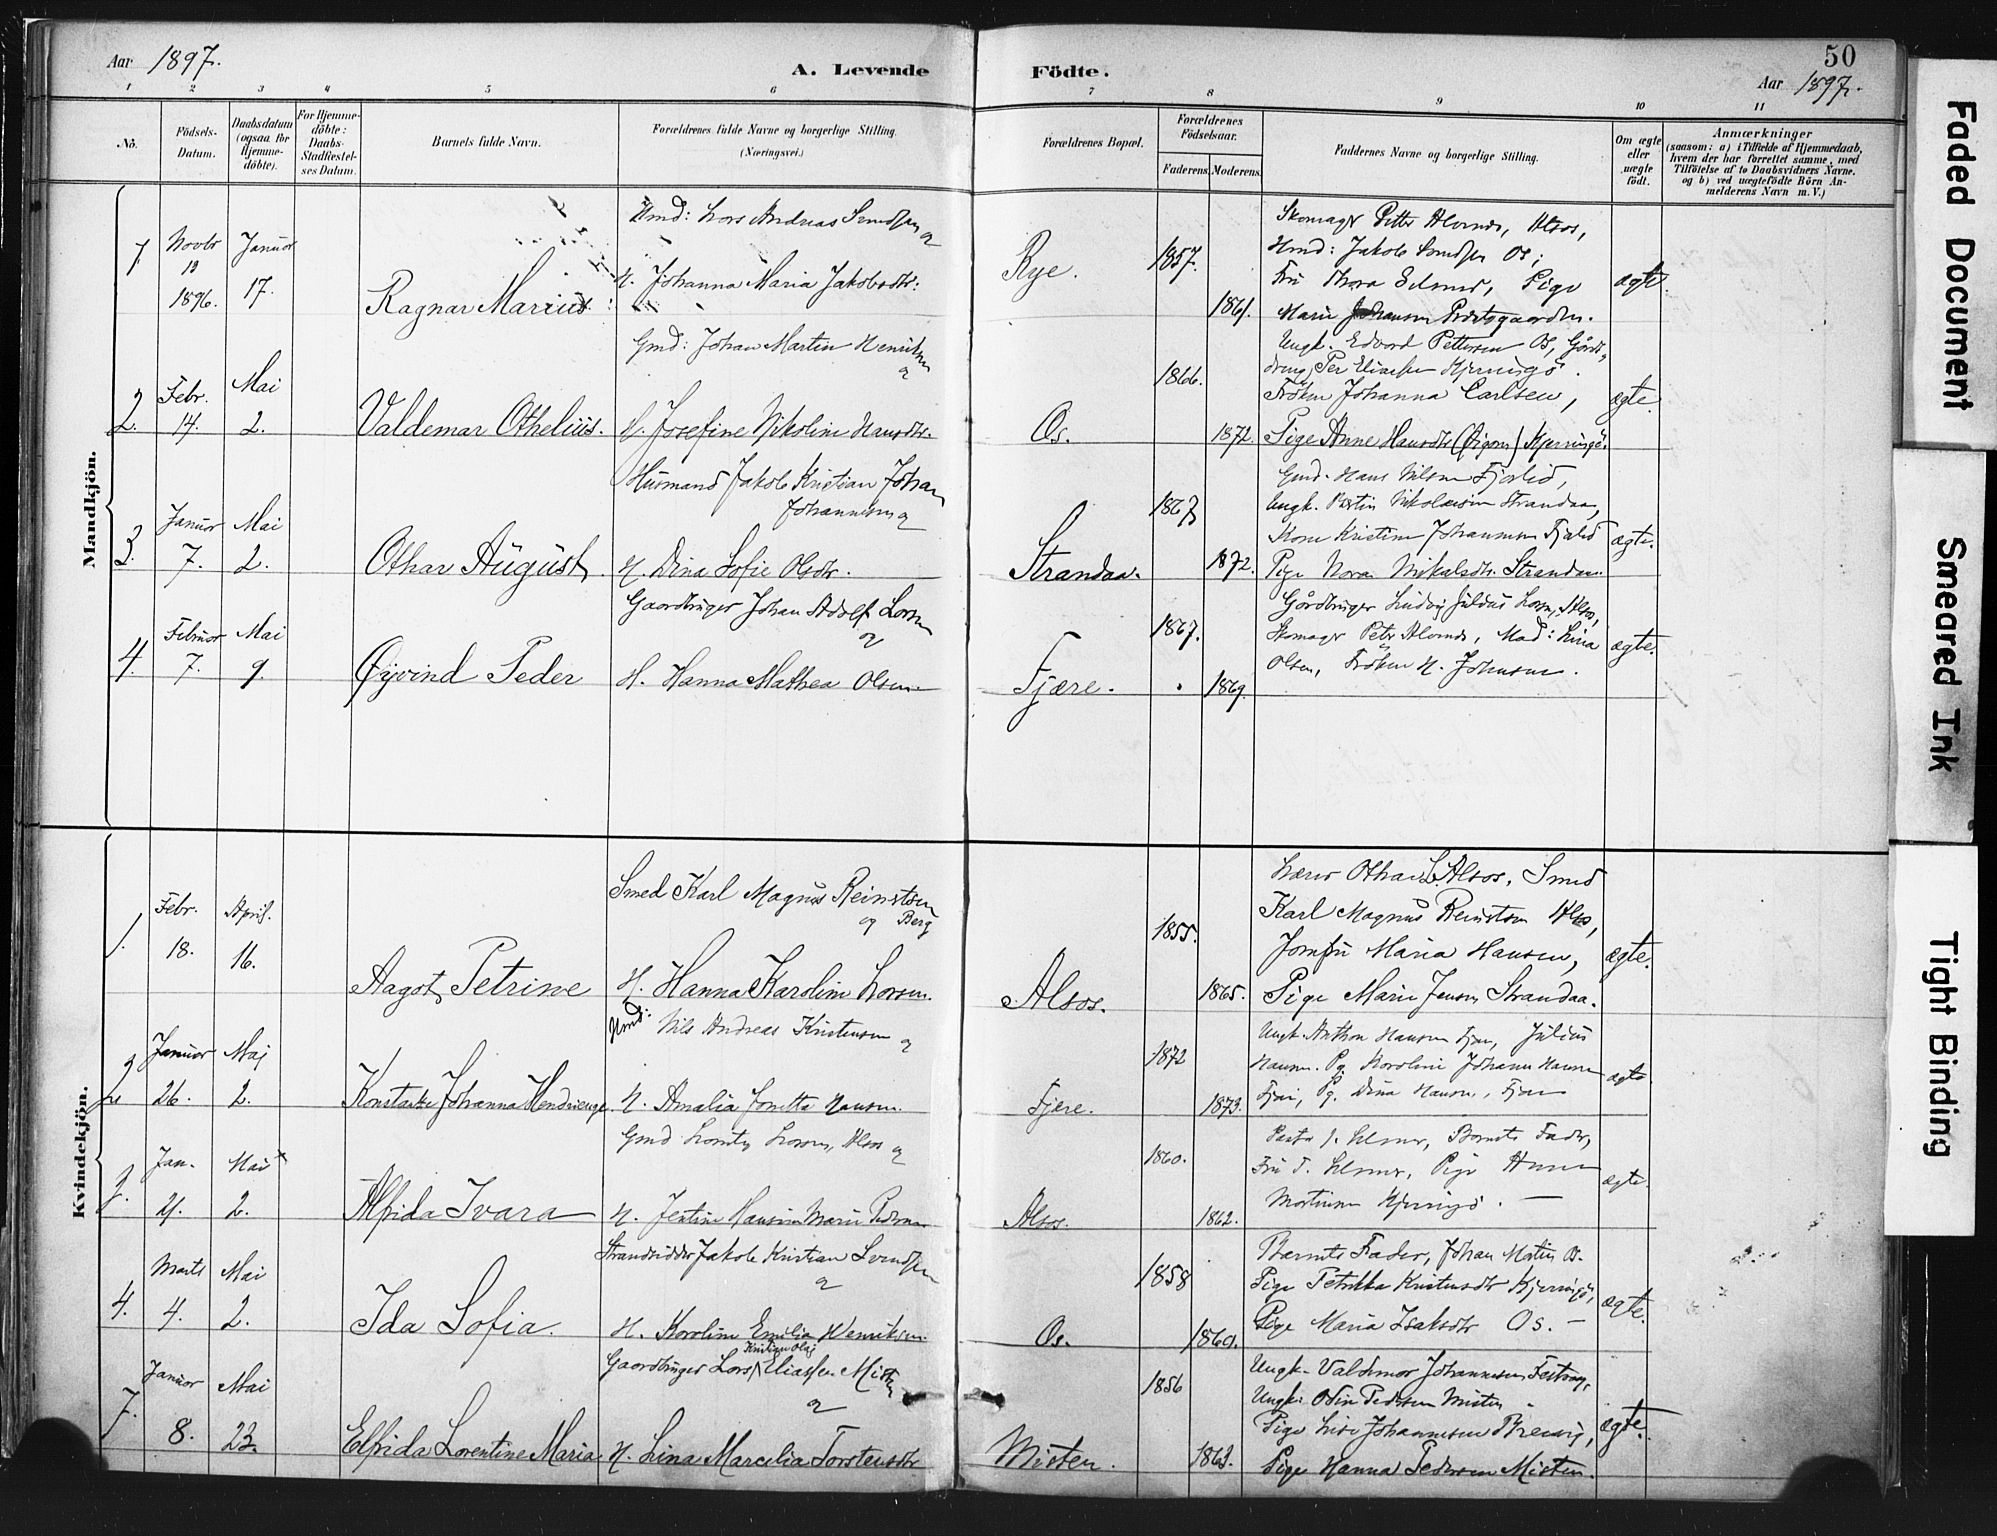 Aar 1897.
A. Levende
Födte.
50
Aar 1897.
1 2 3 4 5 6 7 8 9 10 11
No.
Födsels-
Datum.
Daabsdatum
(ogsaa for
Hjemme-
döbte).
For Hjemme-
döbte:
Daabs-
Stadfæstel-
ses Datum.
Barnets fulde Navn.
Forældrenes fulde Navne og borgerlige Stilling.
(Næringsvei.)
Forældrenes Bopæl.
Forældrenes
Födselsaar.
Faderens.
Moderens.
Faddernes Navne og borgerlige Stilling.
Om ægte
eller
uægte
födt.
Anmærkninger
(saasom: a) i Tilfælde af Hjemmedaab,
hvem der har forrettet samme, med
Tilföielse af to Daabsvidners Navne.
og b) ved uægtefödte Börn An-
melderens Navn m. V.)
Mandkjön.
1
Novbr
13
1896.
Januar
17.
Ragnar Marius.
Lars Andreas
H. Johanna Maria Jakobsdtr.
Rye.
1857.
1861.
Skomager Petter Alsos,
Hmd: Jakob Os,
Fru Thora Pige
Marie Johansen Prestegaarden.
ægte.
2.
Febr.
14.
Mai
2.
Valdemar Othelius.
Gmd: Johan Martin Henriksen
og
H. Josefine Nikoline Hansdtr.
Os.
1866.
1872.
Ungk. Edvard Pettersen Os,
dreng Per Eliassen Kjerringö.
Fröken Johanna Carlsen,
Pige Anne Hansdtr Kjerringö.
ægte.
3.
Januar
7.
Mai
2.
Othar August.
Husmand Jakob Kristian Johan
Johannesen og
H. Dina Sofie Olsdtr.
Strandaa.
1867
1872.
Gmd. Hans Nilsen Fjælid,
Ungk. Nikolaisen Strandaa,
Kone Kristine Johannesen Fjælid
Pige Nora Strandaa.
ægte.
4.
Februar
7.
Mai
9.
Øyvind Peder
Gaardbruger Johan Adolf Larsen
og
H. Hanna Mathea Olsen
Fjære.
1867.
1869.
Gårdbruger Ludvig Julius Larsen, Alsos,
Skomager Peter Mad: Lina
Olsen, Fröken H. Johnsen.
ægte.
Kvindekjön.
1.
Febr.
18.
April.
16.
Aagot Petrine
Smed Karl Magnus Reinetsen
og Berg
H. Hanna Karoline Larsen.
Alsos.
1855.
1865.
Lærer Othar L. Alsos, Smed
Karl Magnus Alsos,
Jomfru Maria Hansen,
Pige Marie Jensen Strandaa.
ægte.
2
Januar
26.
Maj
2.
Johanna
Hmd: Nils Andreas Kristensen og
H. Amalia Jonetta Hansen.
Fjære.
1872
1873.
Ungk. Anthon Hansen Fjære, Julius
Hansen. Pg. Karoline Johanna Hansen
Fjære, Pg. Dina Hansen, Fjære
ægte
3.
Jan.
21.
Mai
2.
Alfrida Ivara
Gmd Larsen, Alsos og
H. Jentine Marie
Alsos.
1860.
1862.
Barnets Fader,
Fru T. Pige
Kjerringö. —
ægte.
4.
Marts
4.
Mai
2.
Ida Sofia.
Strandsidder Jakob Kristian Svendsen
og
H. Karoline Emilia Henriksen.
Os.
1858
1860.
Barnets Fader, Johan Martin Os.
Pige Petrikka Kristensdtr Kjerringö,
Pige Maria Isaksdtr Os. —
ægte.
7.
Januar
8.
Mai
23.
Elfrida Lorentine Maria
Kristian Olaj
Gaardbruger Lars Eliassen Misten
og
H. Lina Marcelia Torstensdtr
Misten.
1856
1863.
Ungk. Valdemar Johannesen Festvaag,
Ungk. Odin Pedersen Misten
Pige Johannesen
Pige Hanna Pedersen Misten.
ægte.
Faded Document
Smeared Ink
Tight Binding